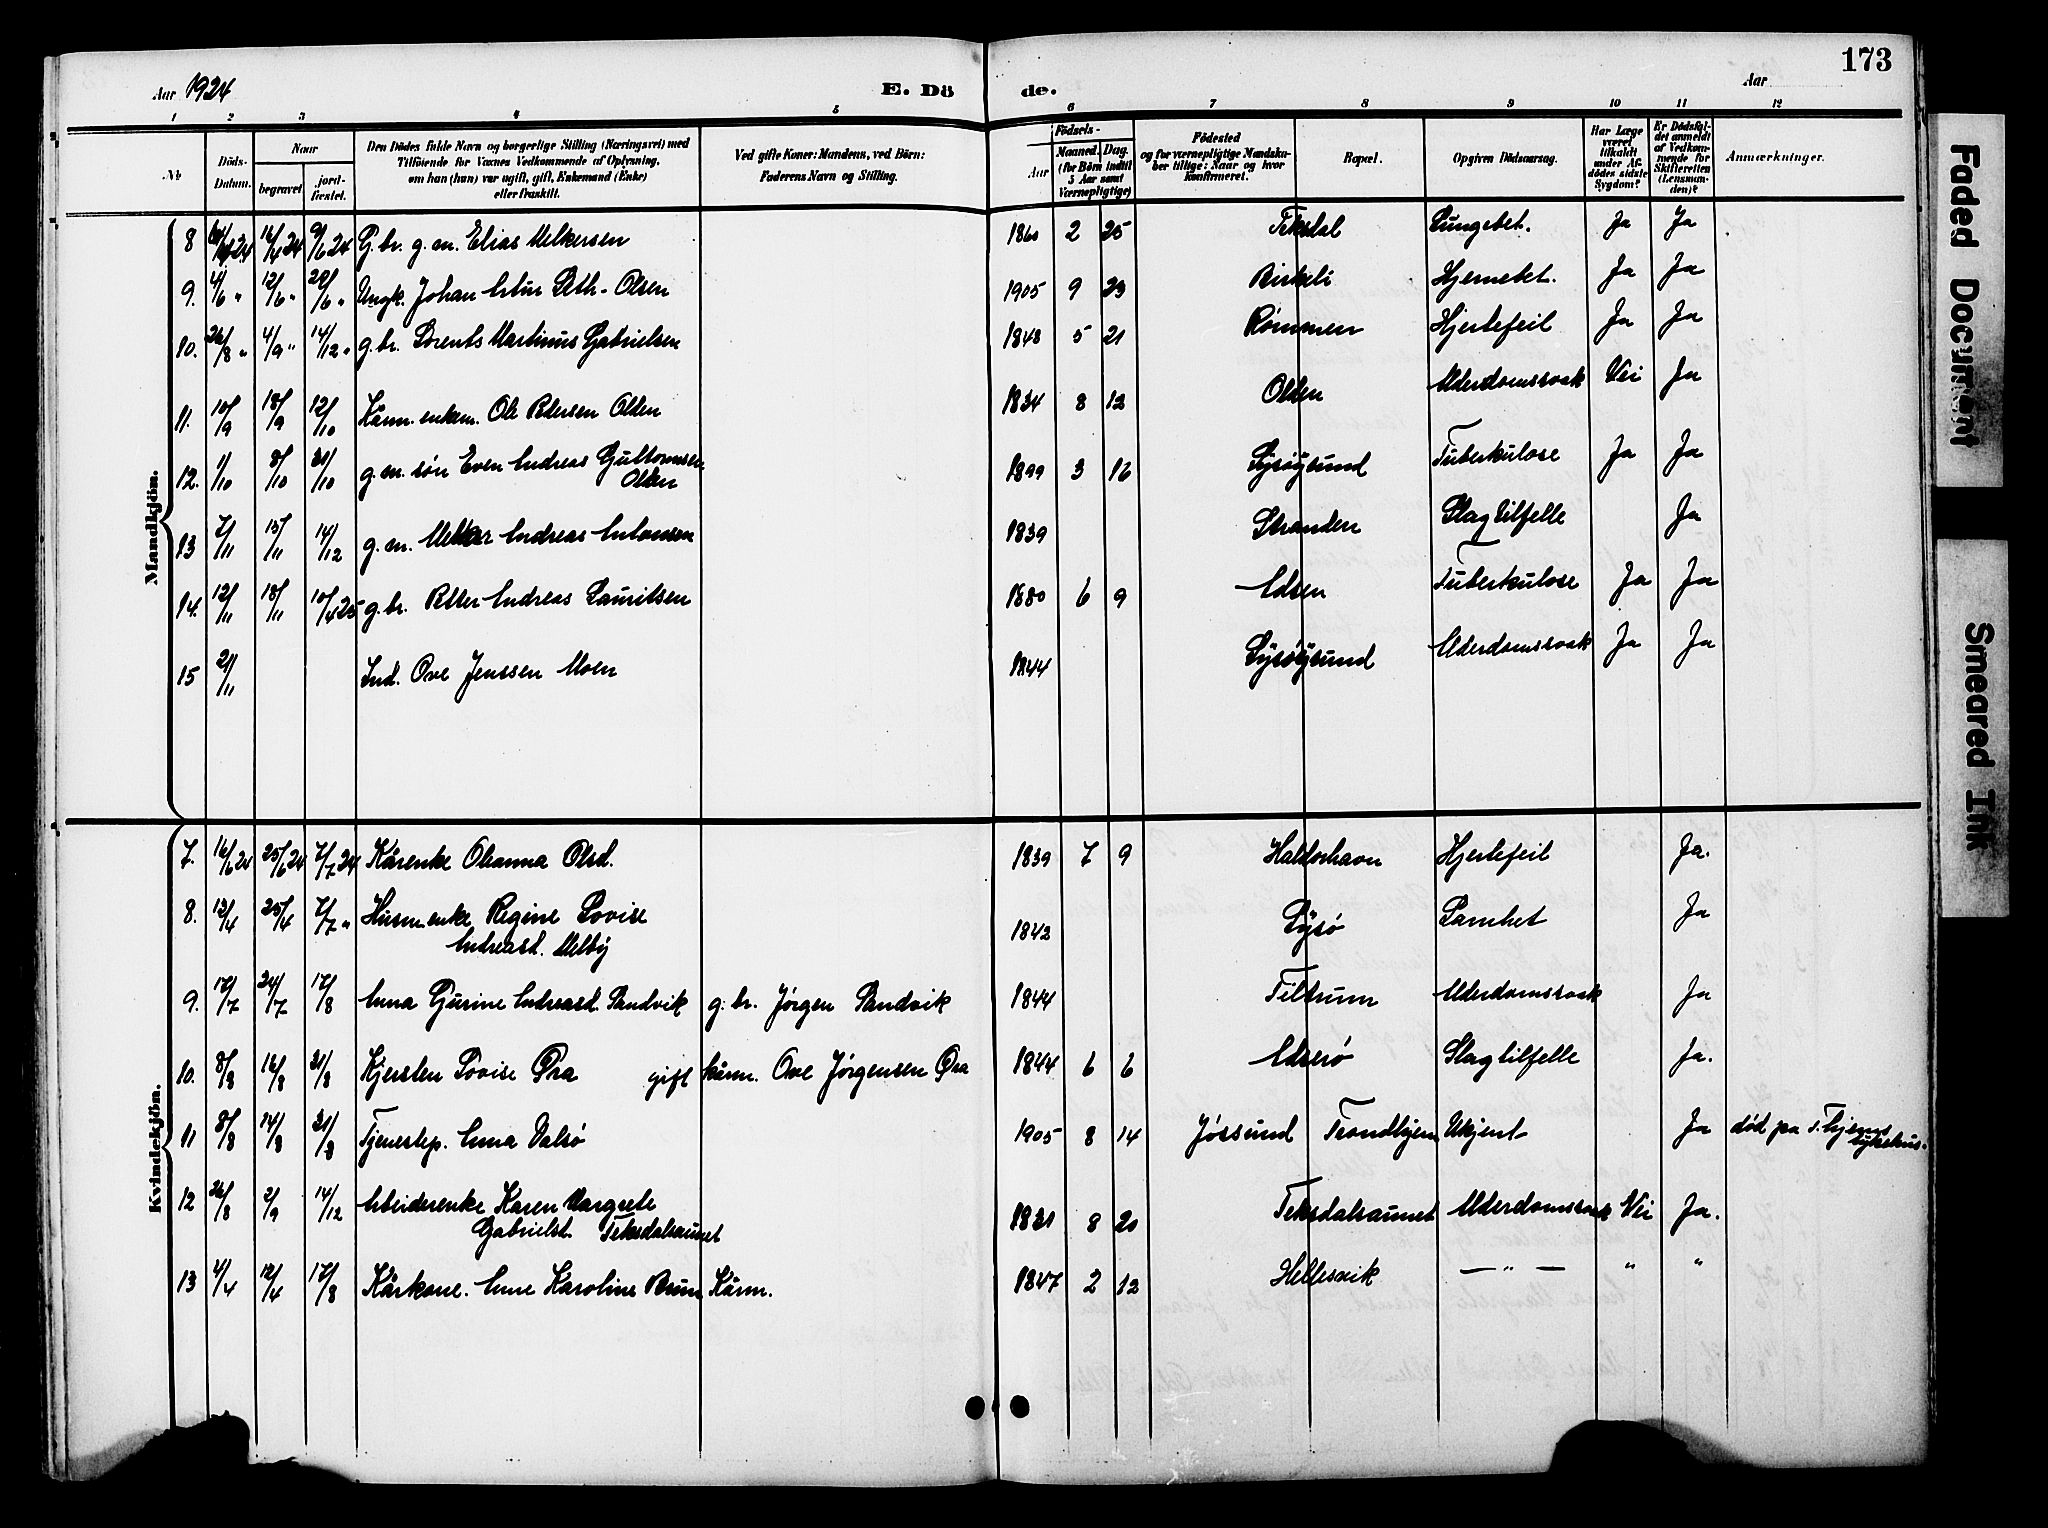 173
Aar 1924
E. Dö de.
Aar
1 2 3 4 5 6 7 8 9 10 11 12
No
Döds-Datum.
Naar
begravet
jord-fæstet.
Den Dödes fulde Navn og borgerlige Stilling (Næringsvei) med
Tilföiende for Voxnes Vedkommende af Oplysning,
om han (hun) var ugift, gift, Enkemand (Enke)
eller fraskilt.
Ved gifte Koner: Mandens, ved Börn:
Faderens Navn og Stilling.
Födsels-
Aar
Maaned. Dag.
(for Börn indtil
5 Aar samt
Værnepligtige)
Födested
og for værnepligtige Mandska-
ber tillige: Naar og hvor
konfirmeret.
Bopæl.
Opgiven Dödsaarsag.
Har Læge
været
tilkaldt
under Af-
dödes sidste
Sygdom?
Er Dödsfal-
det anmeldt
af Vedkom-
mende for
Skifteretten
(Lensman-
den)?
Anmærkninger.
Mandkjön.
8 16/4 24 9/6 24 G.br. g.m. Elias Melkersen 1860 2 25 Teksdal Lungebet. Ja Ja
9. 4/6 " 12/6 " 22/6 " Ungk. Johan Artur Seth-Olsen 1905 9 23 Birkeli Hjernebet. Ja Ja
10. 26/8 " 4/9 " 14/12 " g.br. Lorents Martinus Gabrielsen 1848 5 21 Rømmen Hjertefeil Ja Ja
11. 10/9 18/9 12/10 Kårm. enkem. Ole Petersen Olden 1834 8 12 Olden Alderdomssvak Nei Ja
12. 1/10 8/10 31/10 g.m. søn Even Andreas Guttormsen
Olden 1899 3 16 Lysøysund Tuberkulose Ja Ja
13 7/11 15/11 14/12 g.m. Melker Andreas Antonsen 1839 Stranden Slagtilfelle Ja
14. 12/11 18/11 10/4 25 g.br. Petter Andreas Lauritsen 1880 6 9 Adsen Tuberkulose Ja Ja
15 2/11 Ind. Ove Jenssen Moen 1844 Lysøysund Alderdomssvak Ja Ja
Kvindekjön.
7. 16/6 24 25/6 24 7/7 24 Kårenke Oleanna Olsd. 1839 7 9 Haldorhavn Hjertefeil Ja.
8. 13/4 25/4 7/7 " Husm.enke Regine Lovise
Andreasd. Melby 1842 Lysø Lamhet Ja
9. 17/7 24/7 17/8 Anna Gurine Andreasd. Sandvik g.br. Jørgen Sandvik 1844 Tiltrum Alderdomssvak Ja
10. 8/8 16/8 31/8 Kjersten Lovise Øra gift kårm. Ove Jørgensen Øra 1844 6 6 Adserø Slagtilfelle Ja.
11 8/8 14/8 31/8 Tjenestep. Anna Valsø 1905 8 14 Jøssund Trondhjem Ukjent Ja død på T.hjems
sykehus.
12 26/8 2/9 14/12 Arbeiderenke Karen Margrete
Gabrielsd. Teksdalsaunet 1831 8 20 Teksdalsaunet Alderdomssvak Nei Ja.
13 4/4 12/4 17/8 Kårkone. Anne Karoline Brun Kårm. 1847 2 12 Hellesvik — " — " "
Faded Document
Smeared Ink